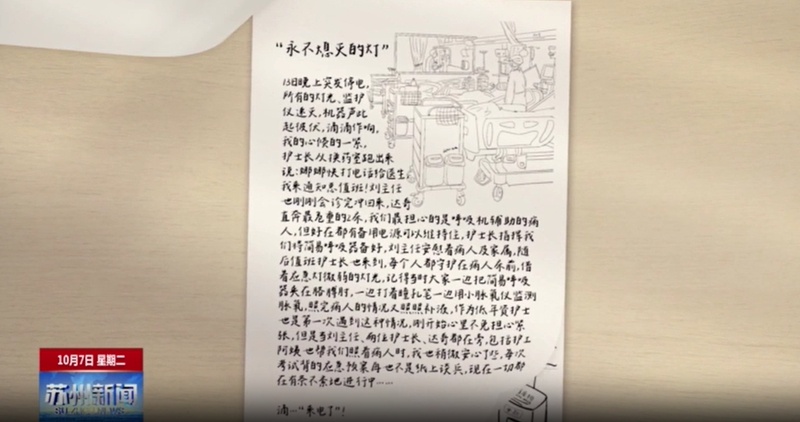 “永不熄灭的灯”
13日晚上突发停电，
所有的灯光、监护
仪速灭，机器声此
起彼伏，滴滴作响，
我的心倏的一紧，
护士长从换药室跑出来
说：娜娜快打电话给医生，
我来通知总值班！刘主任
也刚刚会诊完冲回来，达奇
直奔最危重的2床，我们最担心的是呼吸机辅助的病
人，但好在都有备用电源可以维持住，护士长指挥我
们将简易呼吸器备好，刘主任安慰着病人及家属，随
后值班护士长也来到，每个人都守护在病人床前，借
着应急灯微弱的灯光，记得当时大家一边把简易呼吸
器夹在胳膊肘，一边打着瞳孔笔一边用小脉氧仪监测
脉氧，照完病人的情况又照照补液，作为低年资护士
也是第一次遇到这种情况，刚开始心里不免担心紧
张，但是当刘主任、两位护士长、达奇都在旁，包括护工
阿姨也帮我们照看病人时，我也稍微安心了些，每次
考试背的应急预案再也不是纸上谈兵，现在一切都
在有条不紊地进行中……
滴…“来电了”！
10月7日 星期二
苏州新闻
SUZHOU NEWS